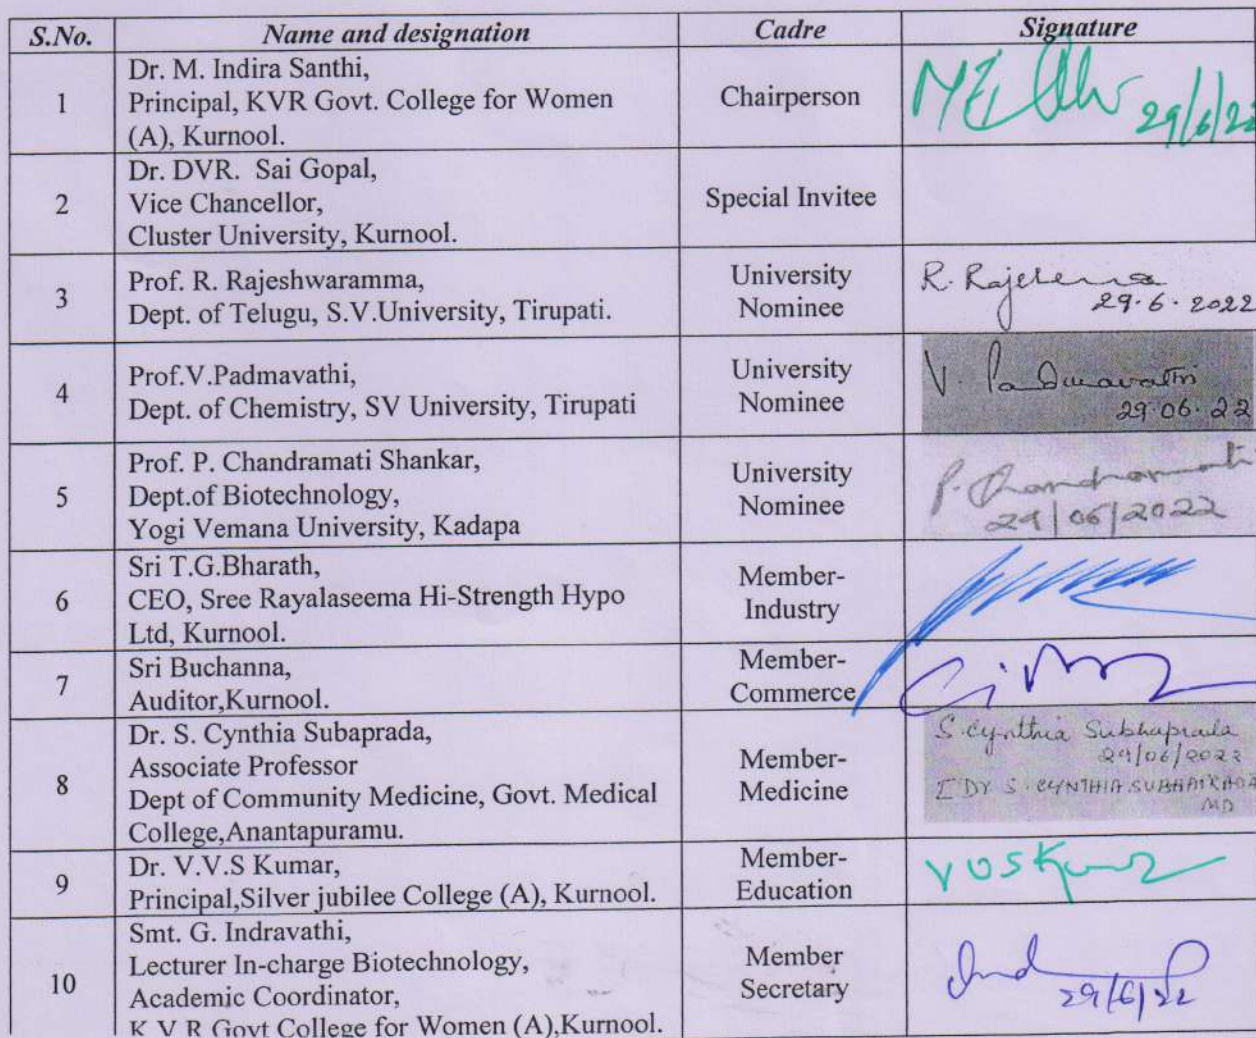 S.No. Name and designation Cadre Signature
1
Dr. M. Indira Santhi,
Principal, KVR Govt. College for Women
(A), Kurnool.
Chairperson
29/6/22
2
Dr. DVR. Sai Gopal,
Vice Chancellor,
Cluster University, Kurnool.
Special Invitee
3
Prof. R. Rajeshwaramma,
Dept. of Telugu, S.V.University, Tirupati.
University
Nominee
R.
29.6.2022
4
Prof.V.Padmavathi,
Dept. of Chemistry, SV University, Tirupati
University
Nominee
V. Padmavathi
29.06.22
5
Prof. P. Chandramati Shankar,
Dept.of Biotechnology,
Yogi Vemana University, Kadapa
University
Nominee
P.
29/06/2022
6
Sri T.G.Bharath,
CEO, Sree Rayalaseema Hi-Strength Hypo
Ltd, Kurnool.
Member-
Industry
7
Sri Buchanna,
Auditor,Kurnool.
Member-
Commerce
8
Dr. S. Cynthia Subaprada,
Associate Professor
Dept of Community Medicine, Govt. Medical
College,Anantapuramu.
Member-
Medicine
S. Cynthia Subhaprada
29/06/2022
DR S. CYNTHIA SUBHAPRADA
MD
9
Dr. V.V.S Kumar,
Principal,Silver jubilee College (A), Kurnool.
Member-
Education
VVSKumar
10
Smt. G. Indravathi,
Lecturer In-charge Biotechnology,
Academic Coordinator,
K V R Govt College for Women (A),Kurnool.
Member
Secretary
29/6/22